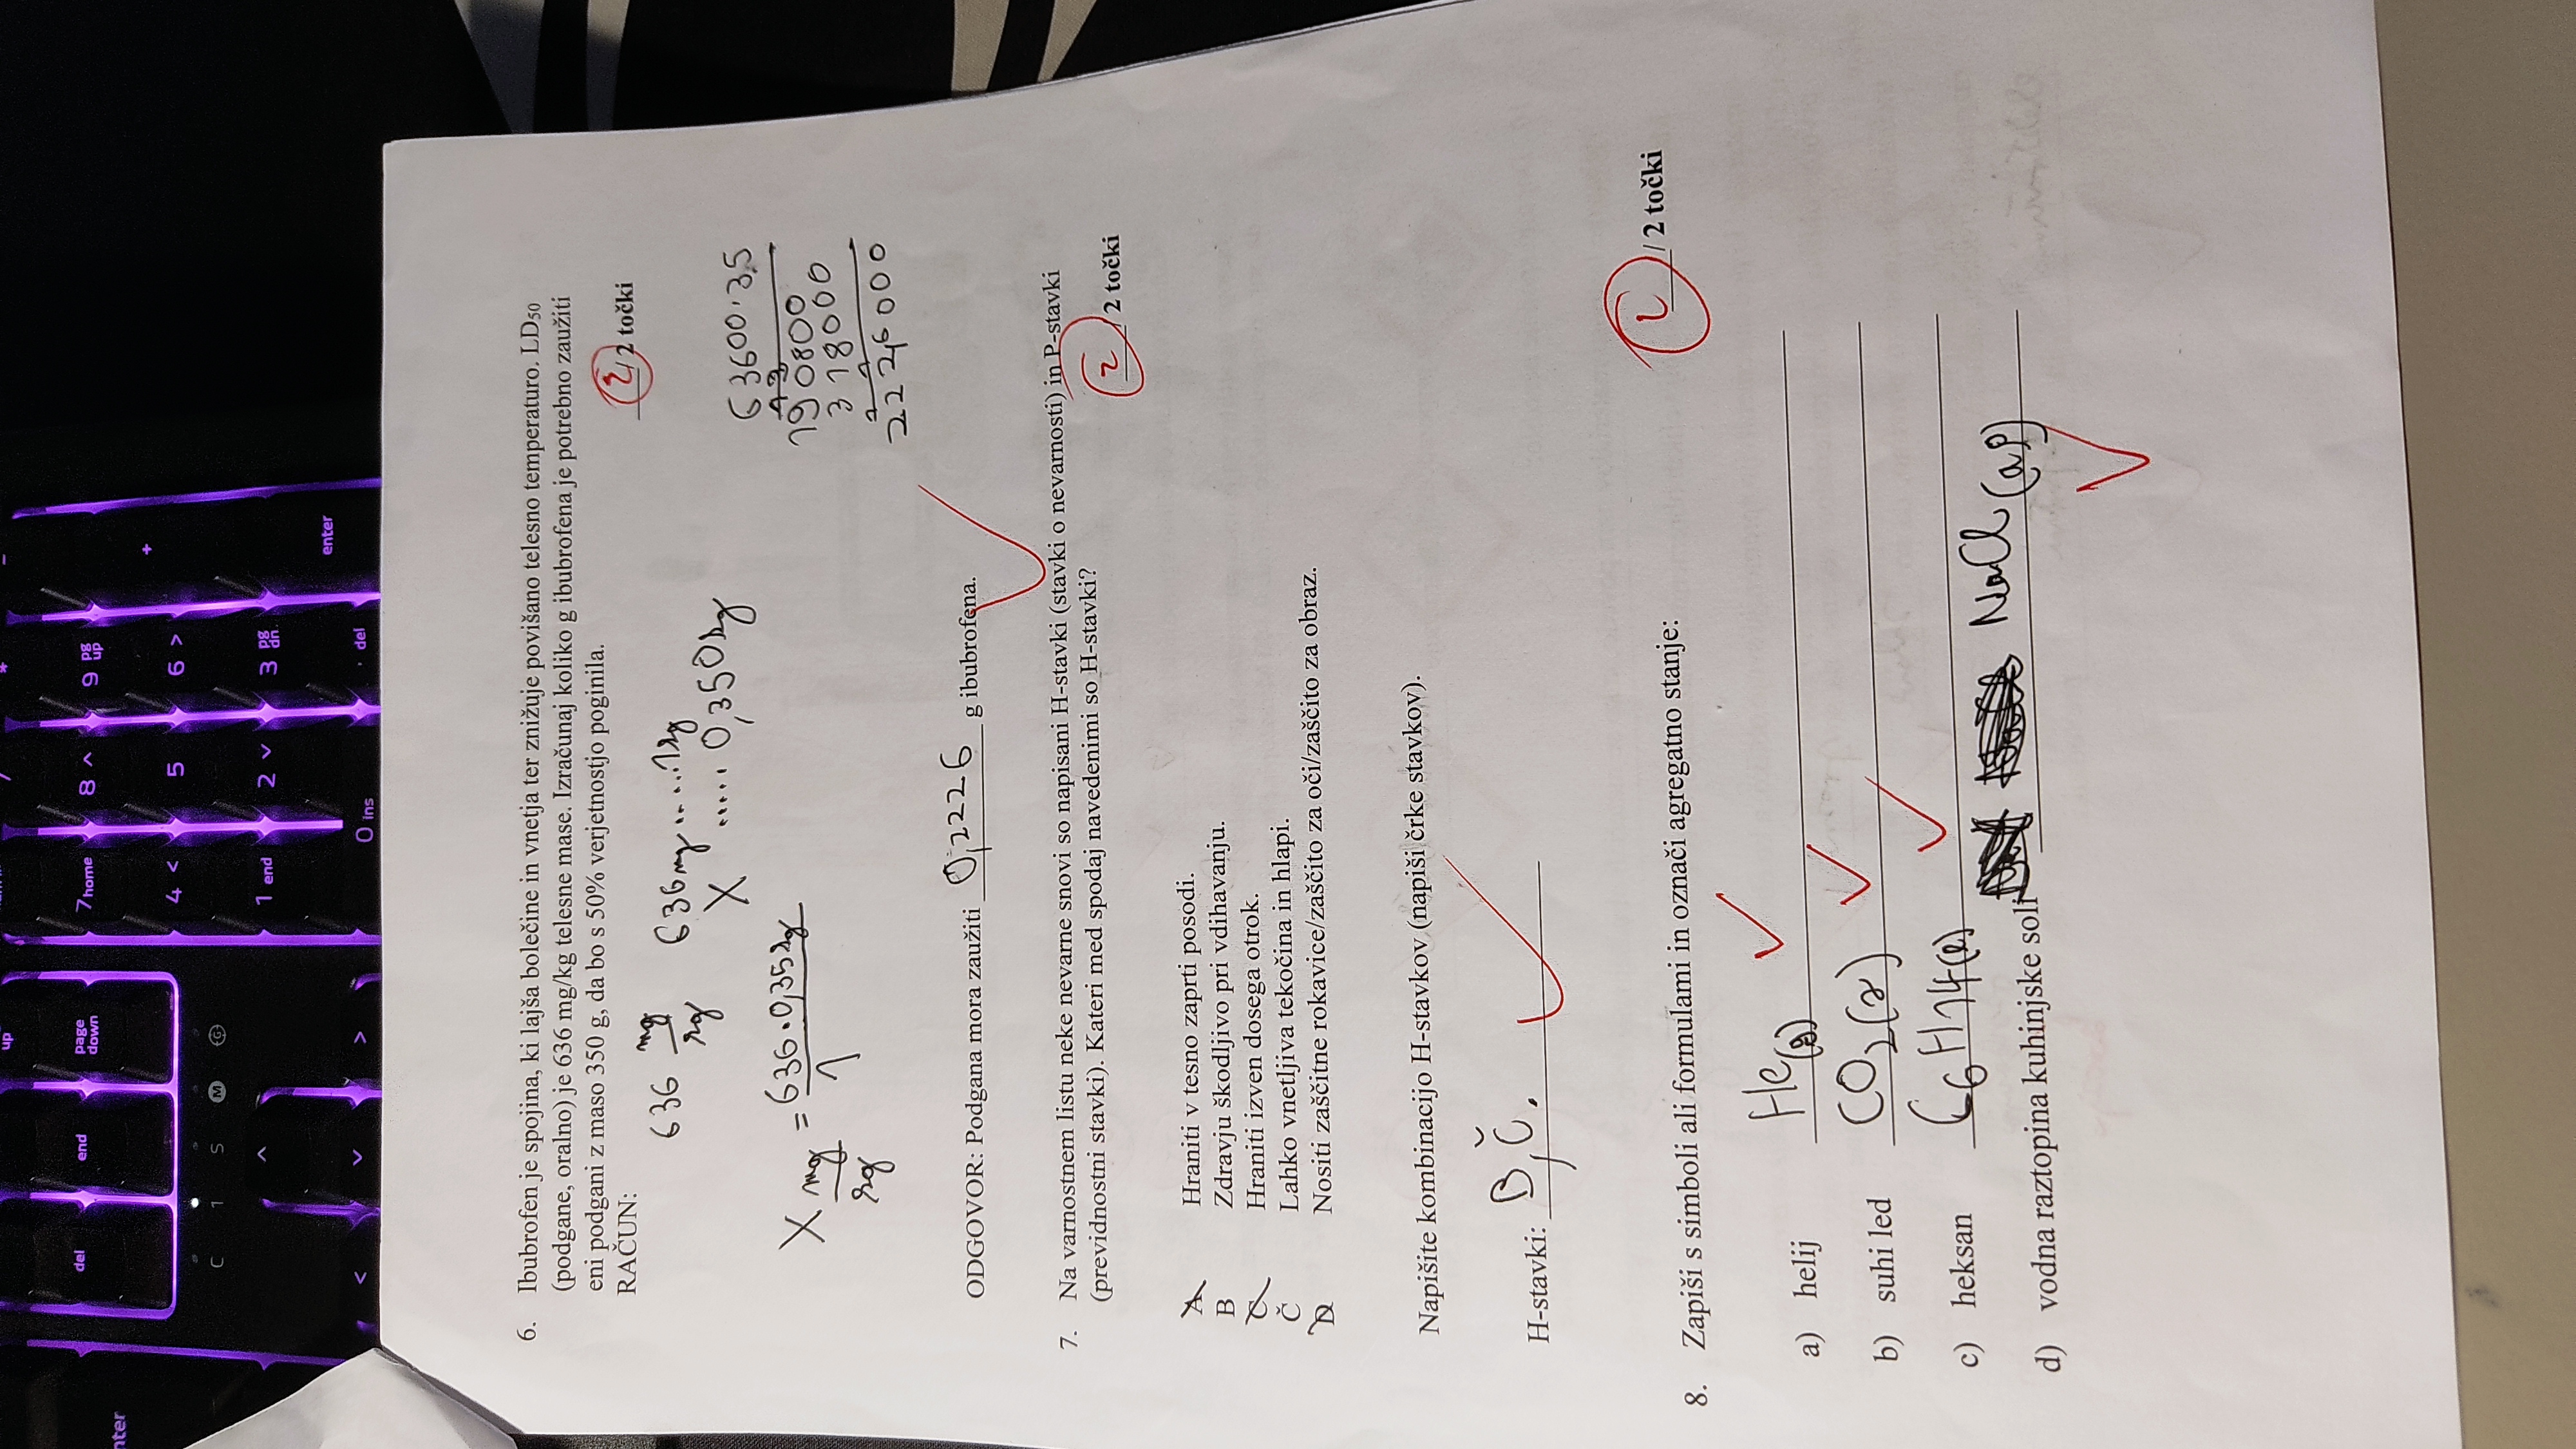 up
del
end
page
down
7 home
8
9 pg
up
nter
+
4 <
5
6 >
C
1
S
M
G
1 end
2
3 pg
dn
enter
0 ins
. del
6. Ibubrofen je spojina, ki lajša bolečine in vnetja ter znižuje povišano telesno temperaturo. LD50
(podgane, oralno) je 636 mg/kg telesne mase. Izračunaj koliko g ibubrofena je potrebno zaužiti
eni podgani z maso 350 g, da bo s 50% verjetnostjo poginila.
RAČUN:
2 / 2 točki
636 mg/kg
636mg.....1kg
X ..... 0,350kg
X mg/kg = 636·0,35kg / 1
63600·3,5
13
190800
318000
1 1
222,6000
ODGOVOR: Podgana mora zaužiti 0,2226 g ibubrofena.
7. Na varnostnem listu neke nevarne snovi so napisani H-stavki (stavki o nevarnosti) in P-stavki
(previdnostni stavki). Kateri med spodaj navedenimi so H-stavki?
2 / 2 točki
A Hraniti v tesno zaprti posodi.
B Zdravju škodljivo pri vdihavanju.
C Hraniti izven dosega otrok.
Č Lahko vnetljiva tekočina in hlapi.
D Nositi zaščitne rokavice/zaščito za oči/zaščito za obraz.
Napišite kombinacijo H-stavkov (napiši črke stavkov).
H-stavki: B,Č.
2 / 2 točki
8. Zapiši s simboli ali formulami in označi agregatno stanje:
a) helij He(g)
b) suhi led CO2(s)
c) heksan C6H14(l)
d) vodna raztopina kuhinjske soli NaCl(aq)